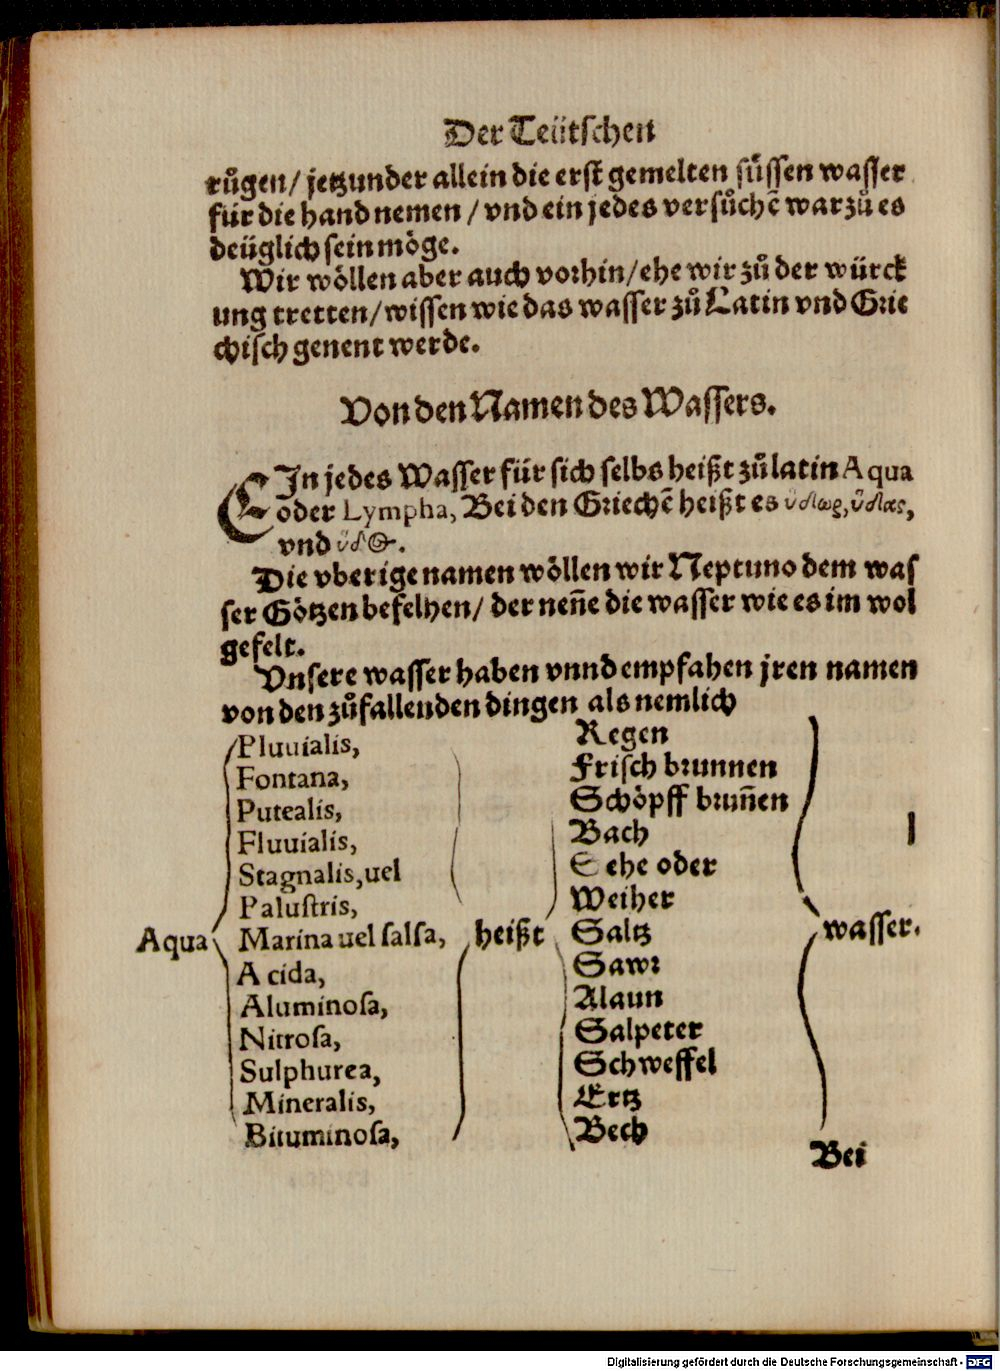 Der Teütschen
růgen/ jetzunder allein die erst gemelten süssen wasser
für die hand nemen / vnd ein jedes versůchẽ warzů es
deüglich sein möge.
Wir wöllen aber auch vorhin/ ehe wir zů der würck
ung tretten/ wissen wie das wasser zů Latin vnd Grie
chisch genent werde.
Von den Namen des Wassers.
EIn jedes Wasser für sich selbs heißt zů latin Aqua
oder Lympha, Bei den Griechẽ heißt es ὕδωρ, ὕδας,
vnd ὕδος.
Die vberige namen wöllen wir Neptuno dem was
ser Götzen befelhen/ der neñe die wasser wie es im wol
gefelt.
Vnsere wasser haben vnnd empfahen jren namen
von den zůfallenden dingen als nemlich
Pluuialis, Regen
Fontana, Frisch brunnen
Putealis, Schöpff bruñen
Fluuialis, Bach
Stagnalis, uel Sehe oder
Palustris, Weiher
Aqua Marina uel salsa, heißt Saltz wasser.
Acida, Sawr
Aluminosa, Alaun
Nitrosa, Salpeter
Sulphurea, Schweffel
Mineralis, Ertz
Bituminosa, Bech
Bei
Digitalisierung gefördert durch die Deutsche Forschungsgemeinschaft - DFG